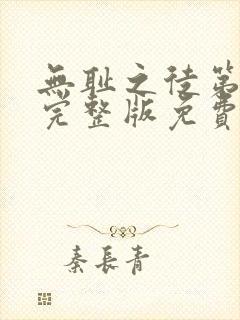 無耻之徒第
完整版免費
秦長青